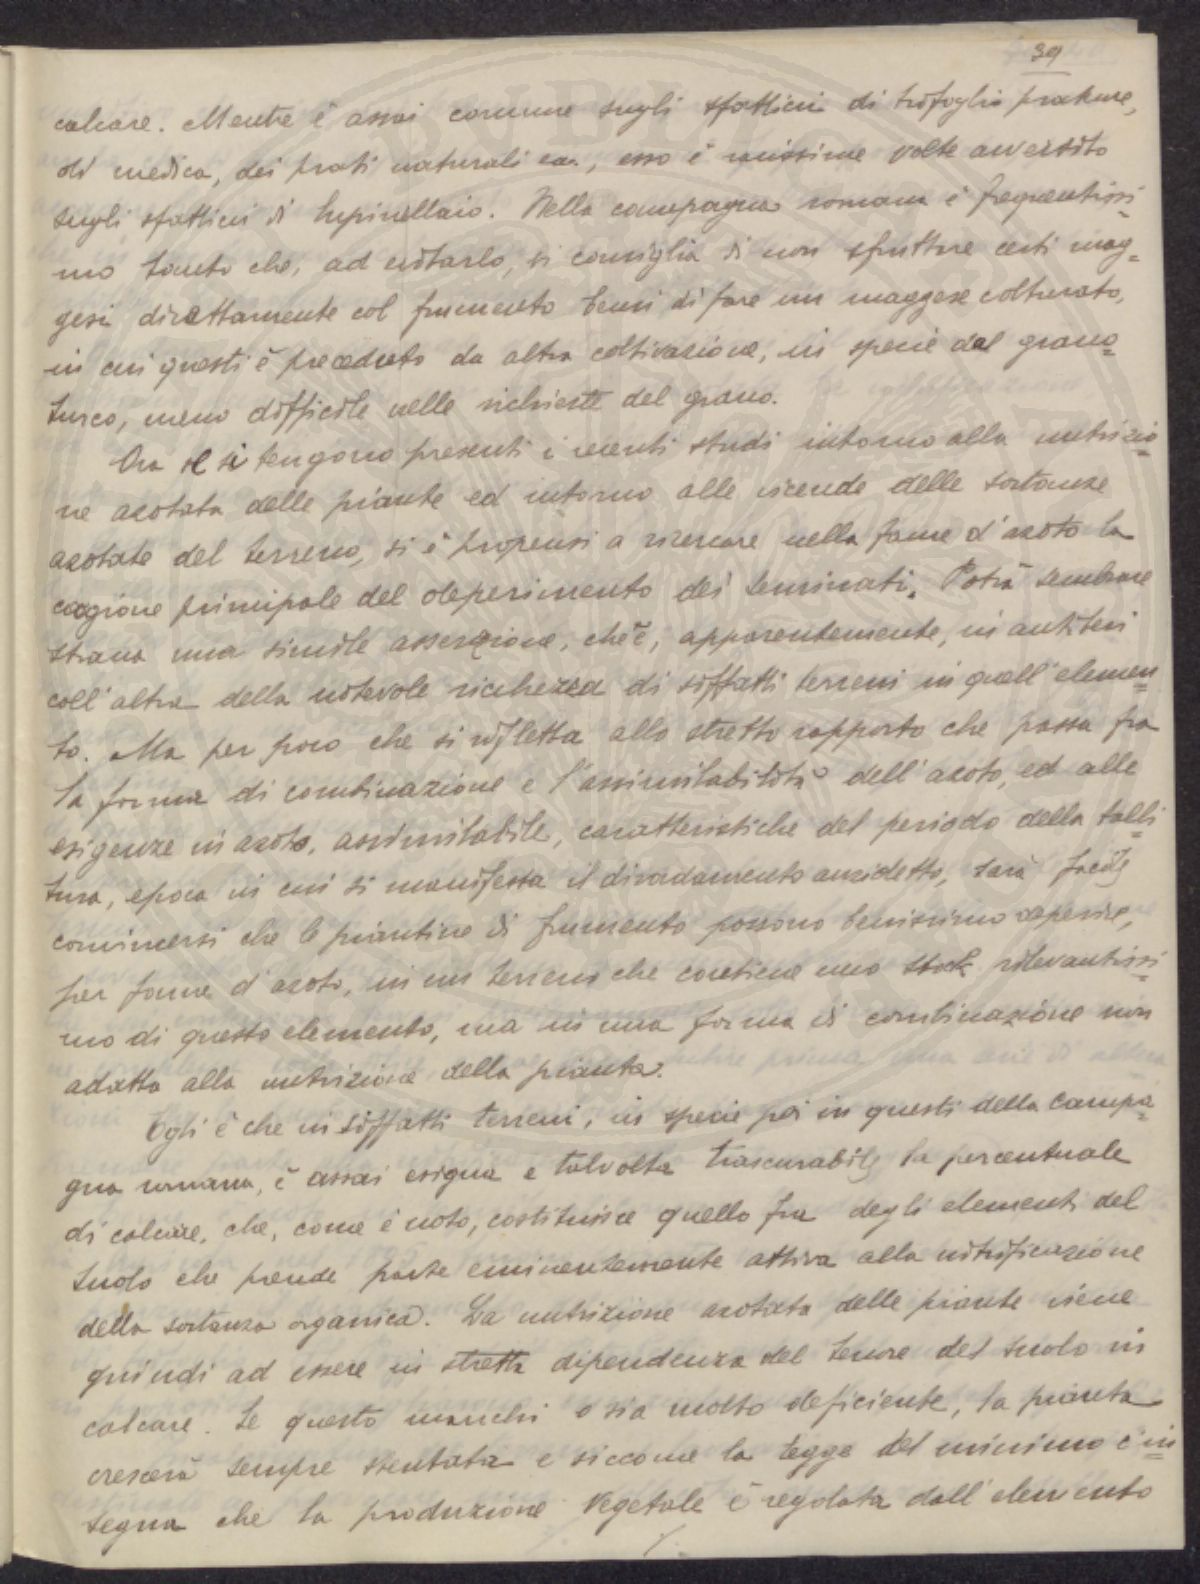 39
calcare. Mentre è assai comune sugli sfatticci di trifoglio pratense,
di medica, dei prati naturali ecc., esso è rarissime volte avvertito
sugli sfatticci di lupinellaio. Nella campagna romana è frequentissi=
mo tanto che, ad evitarlo, si consiglia di non sfruttare certi mag=
gesi direttamente col frumento bensì di fare un maggese colturato,
in cui questi è preceduto da altra coltivazione, in specie dal grano=
turco, meno difficile nelle richieste del grano.
Ora se si tengono presenti i recenti studi intorno alla nutrizio=
ne azotata delle piante ed intorno alle vicende delle sostanze
azotate del terreno, si è propensi a ricercare nella fame d'azoto la
cagione principale del deperimento dei seminati. Potrà sembrare
strana una simile asserzione, che è, apparentemente, in antitesi
coll'altra della notevole ricchezza di siffatti terreni in quell'elemen=
to. Ma per poco che si rifletta allo stretto rapporto che passa fra
la forma di combinazione e l'assimilabilità dell'azoto, ed alle
esigenze in azoto, assimilabile, caratteristiche del periodo della talli=
tura, epoca in cui si manifesta il diradamento anzidetto, sarà facile
convincersi che le piantine di frumento possono benissimo deperire,
per fame d'azoto, in un terreno che contiene uno stock rilevantissi=
mo di questo elemento, ma in una forma di combinazione non
adatta alla nutrizione della pianta.
Egli è che in siffatti terreni, in specie poi in questi della campa=
gna romana, è assai esigua e talvolta trascurabile la percentuale
di calcare, che, come è noto, costituisce quello fra degli elementi del
suolo che prende parte eminentemente attiva alla nitrificazione
della sostanza organica. La nutrizione azotata delle piante viene
quindi ad essere in stretta dipendenza del tenore del suolo in
calcare. Se questo manchi o sia molto deficiente, la pianta
crescerà sempre stentata e siccome la legge del minimo c'in=
segna che la produzione vegetale è regolata dall'elemento